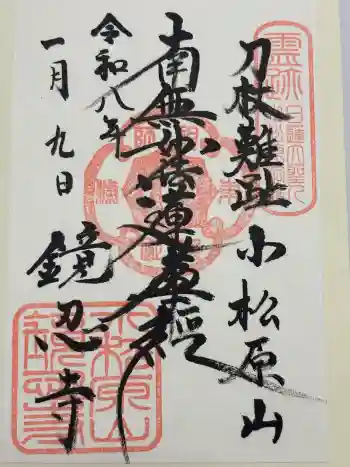 刀杖難趾 小松原山
南無妙法蓮華経
令和八年
一月九日 鏡忍寺